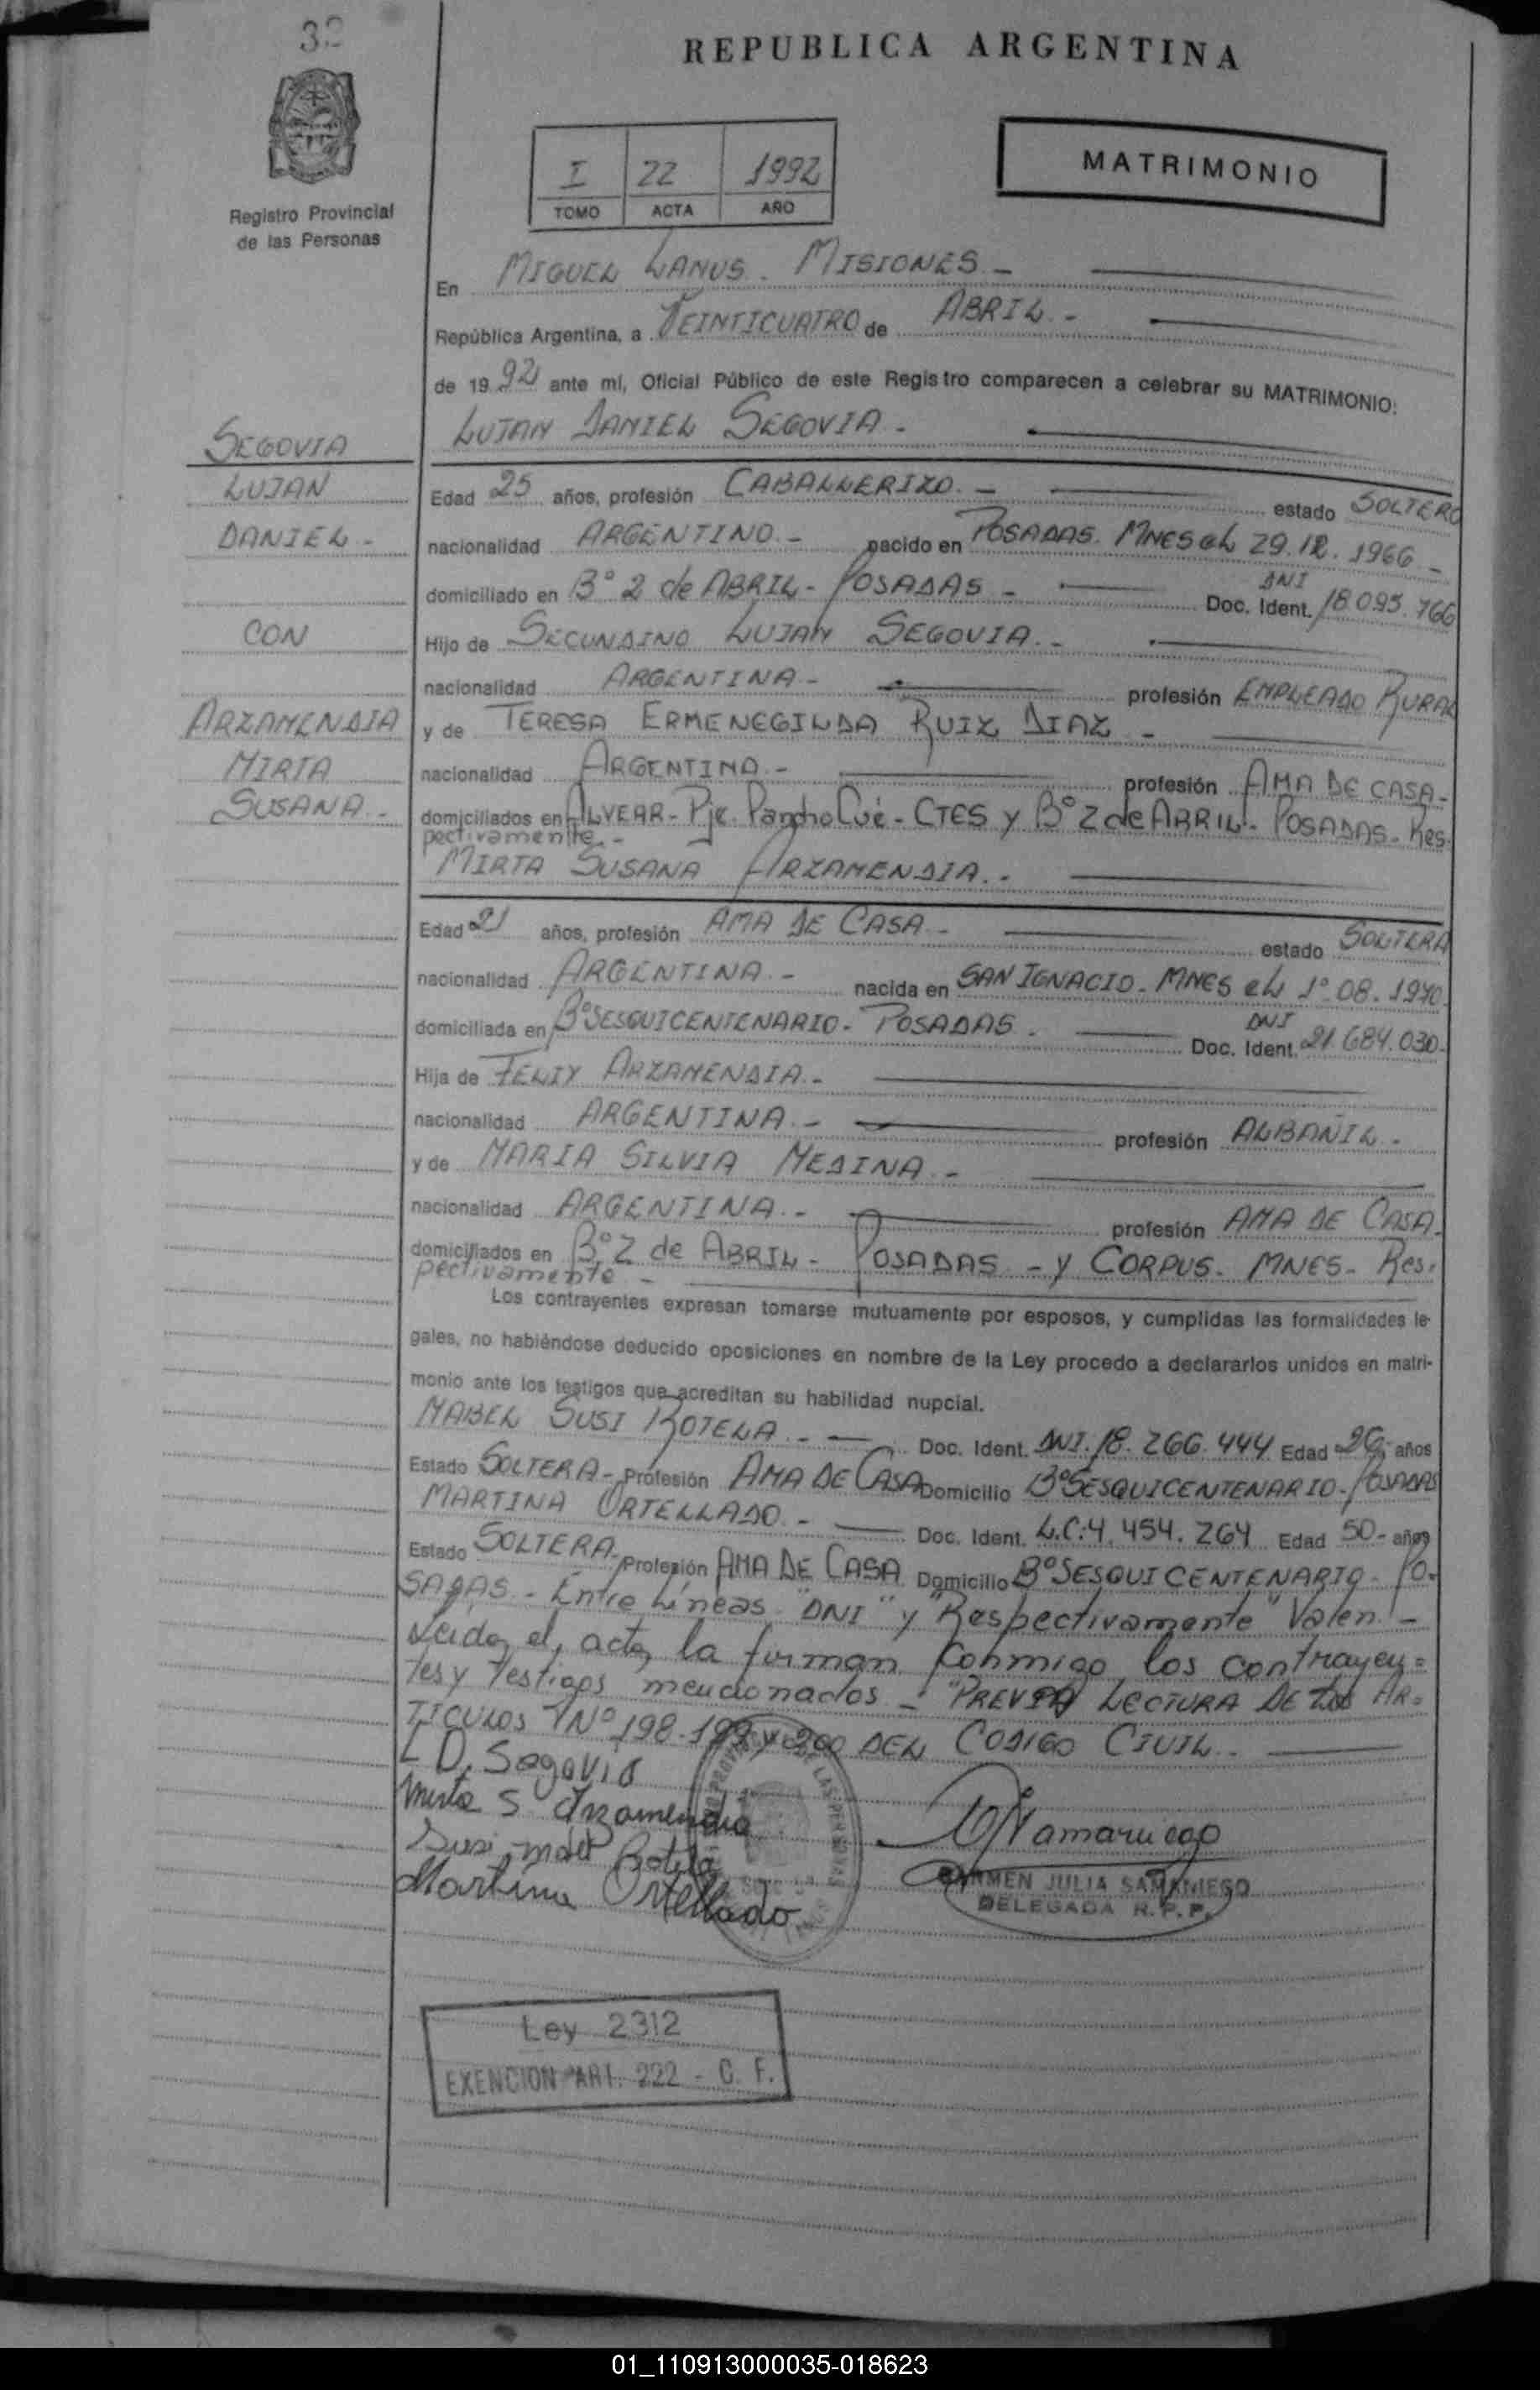 32
REPUBLICA ARGENTINA
Registro Provincial
de las Personas
I 22 1992
TOMO ACTA AÑO
MATRIMONIO
En MIGUEL LANUS. MISIONES.-
República Argentina, a VEINTICUATRO de ABRIL.-
de 19 92 ante mí, Oficial Público de este Registro comparecen a celebrar su MATRIMONIO:
LUJAN DANIEL SEGOVIA.-
SEGOVIA
LUJAN
DANIEL.-
CON
ARZAMENDIA
MIRTA
SUSANA.-
Edad 25 años, profesión CABALLERIZO.- estado SOLTERO
nacionalidad ARGENTINO.- nacido en POSADAS. MNES el 29.12.1966.-
domiciliado en B° 2 de ABRIL - POSADAS.- Doc. Ident. DNI 18.095.766
Hijo de SECUNDINO LUJAN SEGOVIA.-
nacionalidad ARGENTINA.- profesión EMPLEADO RURAL
y de TERESA ERMENEGILDA RUIZ DIAZ.-
nacionalidad ARGENTINA.- profesión AMA DE CASA.-
domiciliados en ALVEAR - Pje. Pancho Cué - CTES y B° 2 de ABRIL - POSADAS - Res-
pectivamente.-
MIRTA SUSANA ARZAMENDIA.-
Edad 21 años, profesión AMA DE CASA.- estado SOLTERA
nacionalidad ARGENTINA.- nacida en SAN IGNACIO - MNES el 1°.08.1970.
domiciliada en B° SESQUICENTENARIO - POSADAS. Doc. Ident. DNI 21.684.030-
Hija de FELIX ARZAMENDIA.-
nacionalidad ARGENTINA.- profesión ALBAÑIL.-
y de MARIA SILVIA MEDINA.-
nacionalidad ARGENTINA.- profesión AMA DE CASA.
domiciliados en B° 2 de ABRIL - POSADAS - y CORPUS - MNES - Res.
pectivamente -
Los contrayentes expresan tomarse mutuamente por esposos, y cumplidas las formalidades le-
gales, no habiéndose deducido oposiciones en nombre de la Ley procedo a declararlos unidos en matri-
monio ante los testigos que acreditan su habilidad nupcial.
MABEL SUSI BOTELA.- Doc. Ident. DNI. 18.266.444 Edad 26- años
Estado SOLTERA- Profesión AMA DE CASA Domicilio B° SESQUICENTENARIO - POSADAS
MARTINA ORTELLADO.- Doc. Ident. L.C: 4.454.264 Edad 50- años
Estado SOLTERA- Profesión AMA DE CASA Domicilio B° SESQUICENTENARIO - PO-
SADAS - Entre Líneas "DNI" y "Respectivamente" Valen.-
Leida el acta, la firman conmigo los contrayen=
tes y testigos mencionados - "PREVIA LECTURA DE LOS AR-
TICULOS N° 198-199 y 200 DEL CODIGO CIVIL.-
L D. Segovia
Mirta S Arzamendia
Susi mabel Botela
Martina Ortellado
CARMEN JULIA SAMANIEGO
DELEGADA R.P.P.
Ley 2312
EXENCION ART. 222 - C. F.
01_110913000035-018623